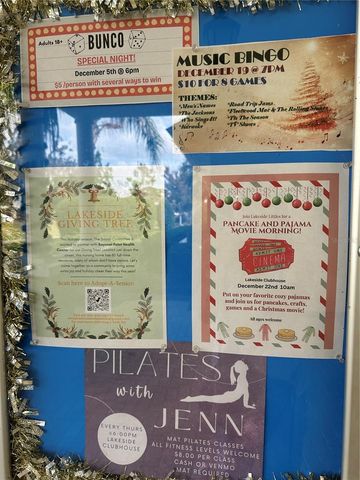 Adults 18+
BUNCO
SPECIAL NIGHT!
December 5th @ 6pm
$5 /person with several ways to win
MUSIC BINGO
DECEMBER 19 @ 7PM
$10 FOR 8 GAMES
THEMES:
*Men's Names
*The Jacksons
*Who Sings It?
*Karaoke
*Road Trip Jams
*Fleetwood Mac & The Rolling Stones
*Tis The Season
*TV Shows
LAKESIDE
GIVING TREE
Scan here to Adopt-A-Senior
Join Lakeside Littles for a
PANCAKE AND PAJAMA
MOVIE MORNING!
CINEMA
Lakeside Clubhouse
December 22nd 10am
Put on your favorite cozy pajamas
and join us for pancakes, crafts,
games and a Christmas movie!
All ages welcome
PILATES
with
JENN
EVERY THURS
@6:00PM
LAKESIDE
CLUBHOUSE
MAT PILATES CLASSES
ALL FITNESS LEVELS WELCOME
$8.00 PER CLASS
CASH OR VENMO
MAT REQUIRED